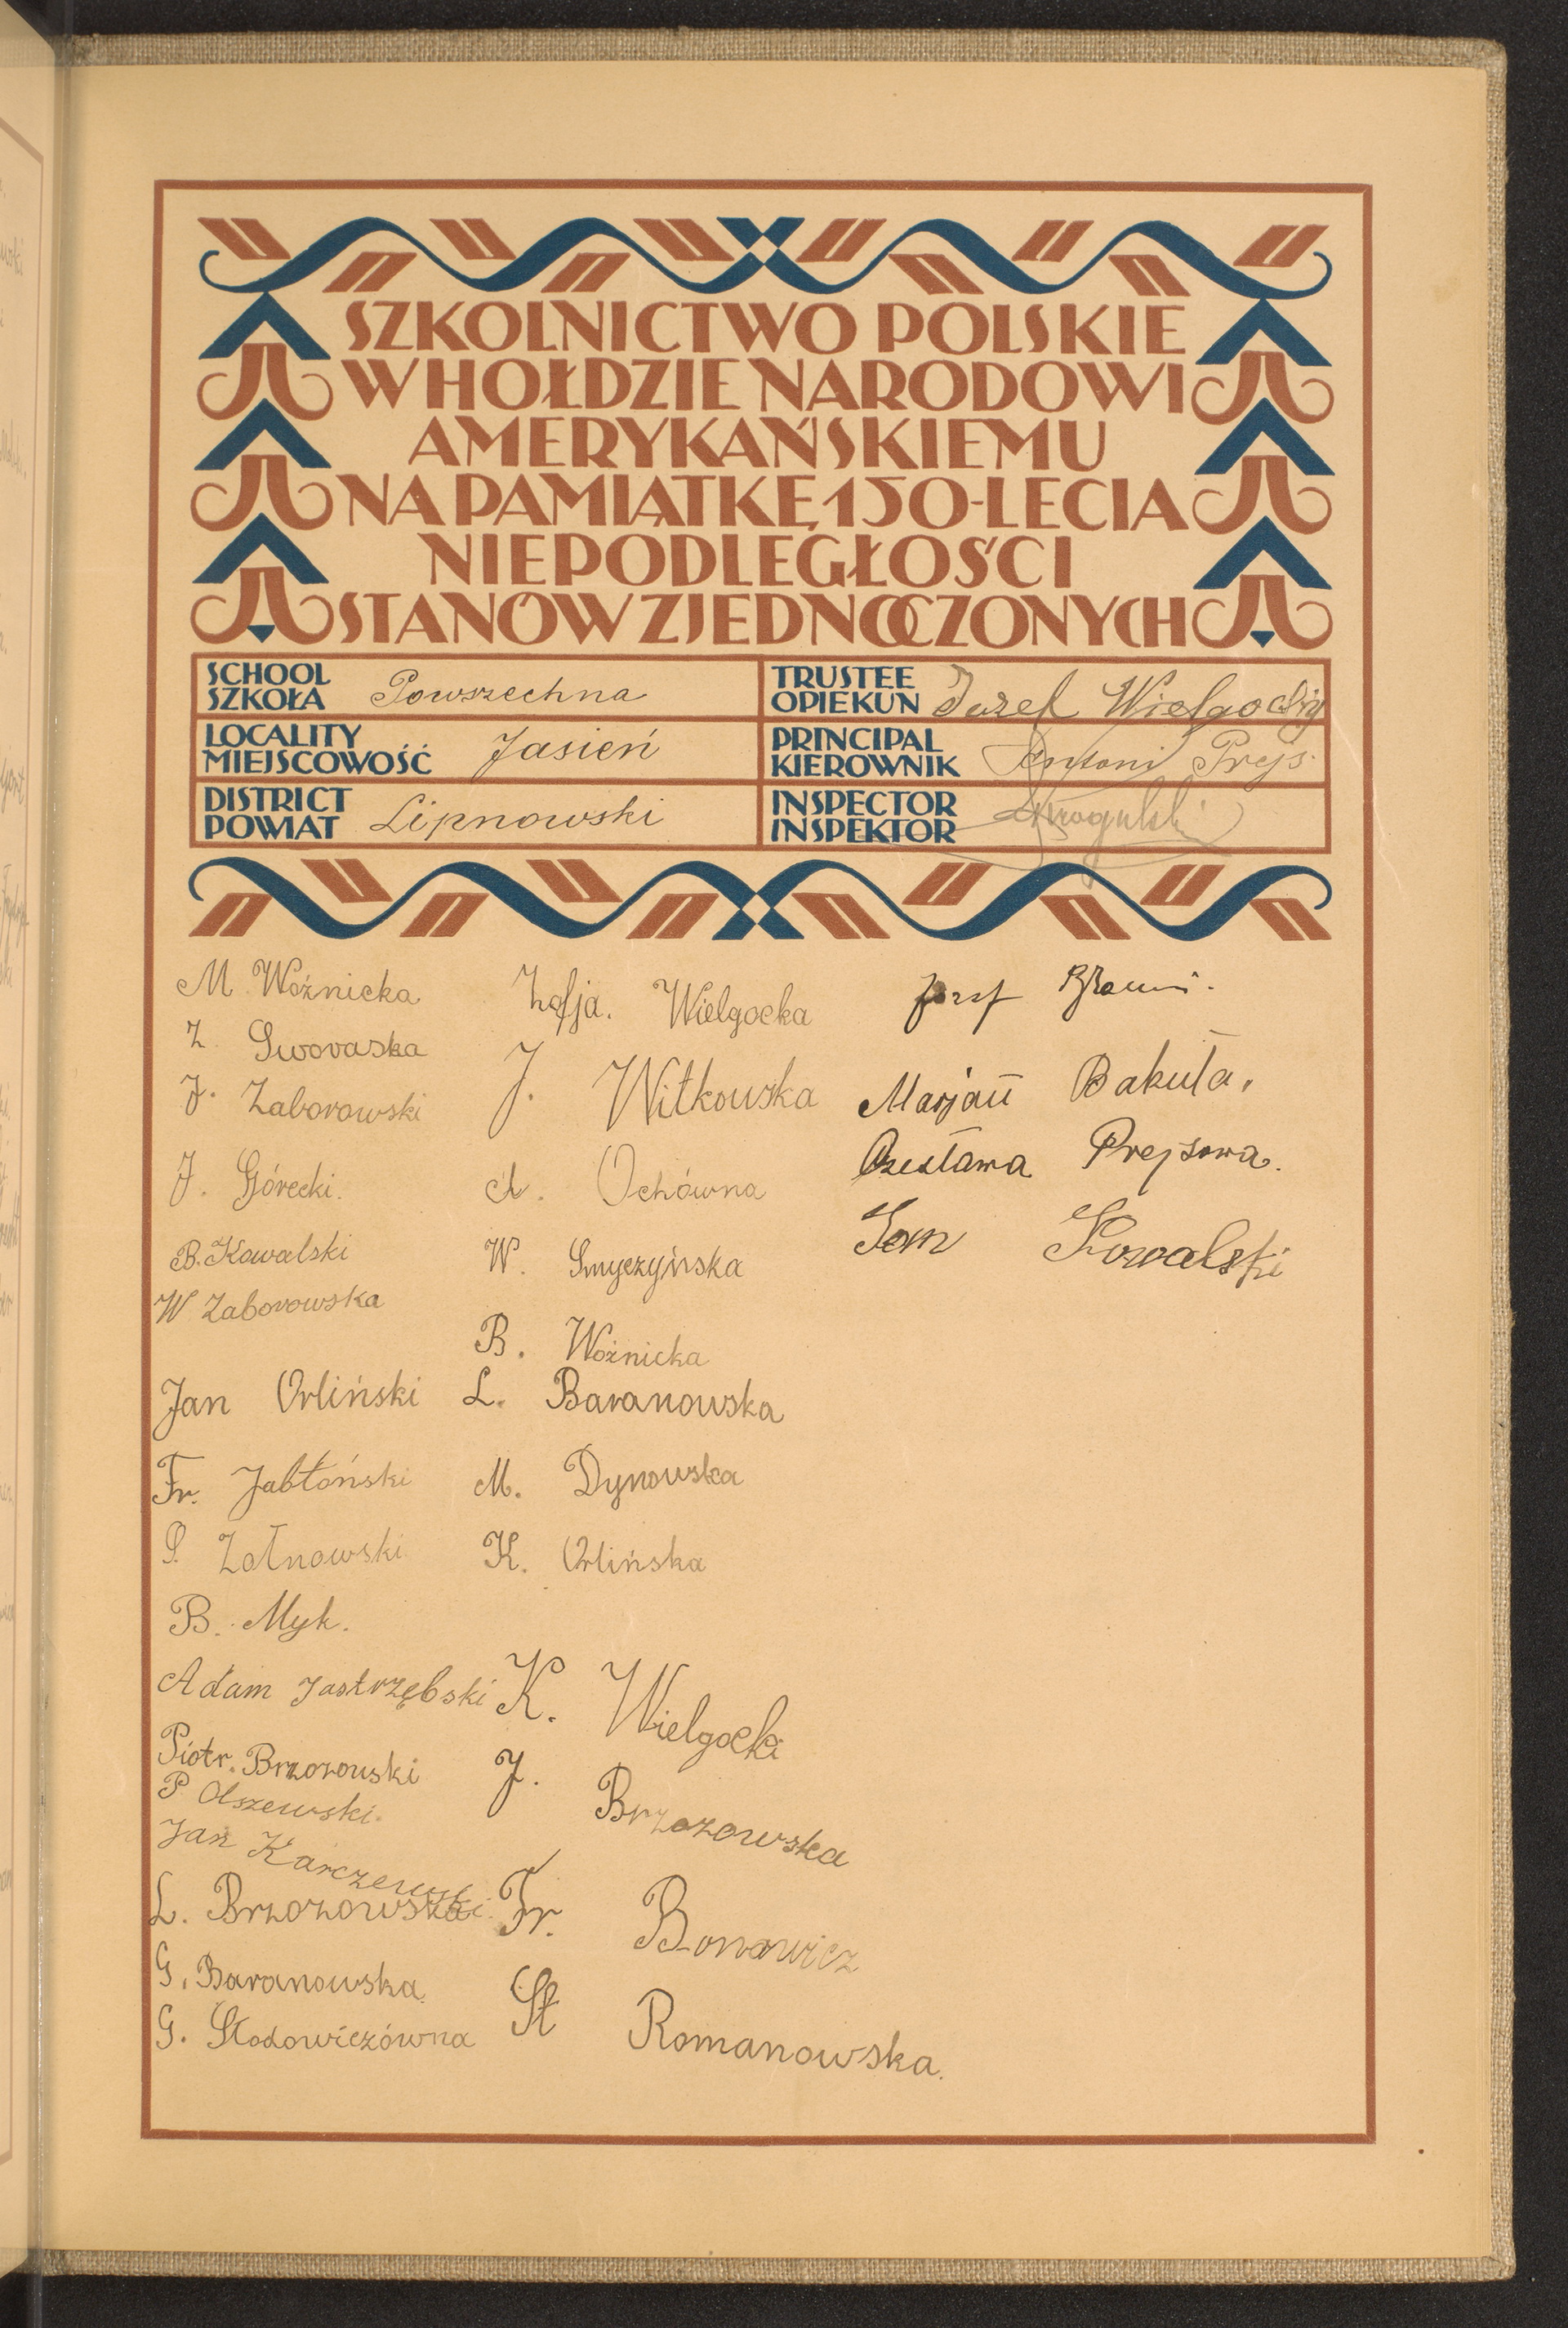 SZKOLNICTWO POLSKIE
W HOŁDZIE NARODOWI
AMERYKAŃSKIEMU
NA PAMIĄTKĘ 150-LECIA
NIEPODLEGŁOŚCI
STANÓW ZJEDNOCZONYCH
SCHOOL
SZKOŁA Powszechna
LOCALITY
MIEJSCOWOŚĆ Jasień
DISTRICT
POWIAT Lipnowski
TRUSTEE
OPIEKUN Józef Wielgocki
PRINCIPAL
KIEROWNIK Antoni Prejs.
INSPECTOR
INSPEKTOR
M Woźnicka
Z.
J. Zaborowski
J. Górecki.
B. Kowalski
W Zaborowska
Jan Orliński
Fr. Jabłoński
S. Żołnowski
B. Myk.
Adam Jastrzębski
Piotr. Brzozowski
P Olszewski.
Jan Karczewski.
L. Brzozowska
G. Baranowska.
G. Słodowiczówna
Zofja. Wielgocka
J. Witkowska
A. Ochówna
W. Smyczyńska
B. Woźnicka
L. Baranowska
M. Dynowska
K. Orlińska
K. Wielgocki
J. Brzozowska
Fr. Bonowicz
St Romanowska.
Józef
Marjan Bakuła.
Czesława Prejsowa.
Jan Kowalski